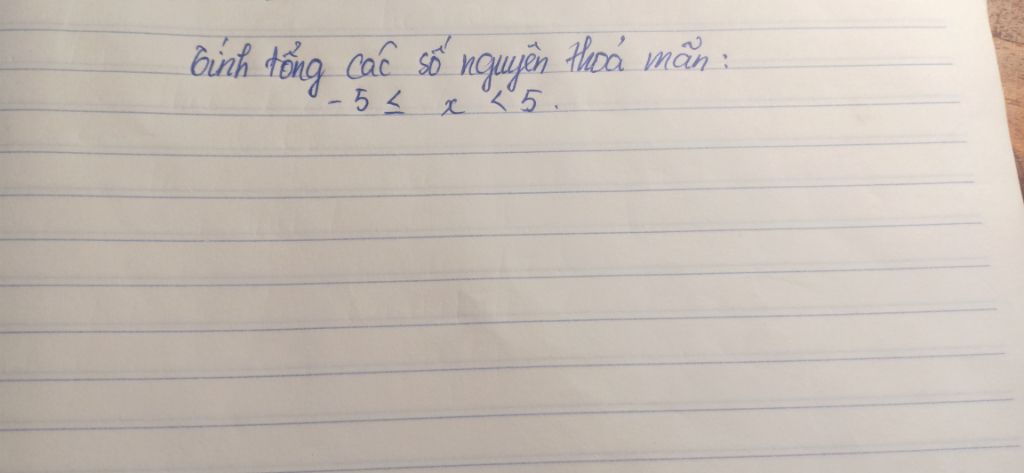 Tính tổng các số nguyên thoả mãn:
- 5 ≤ x < 5.